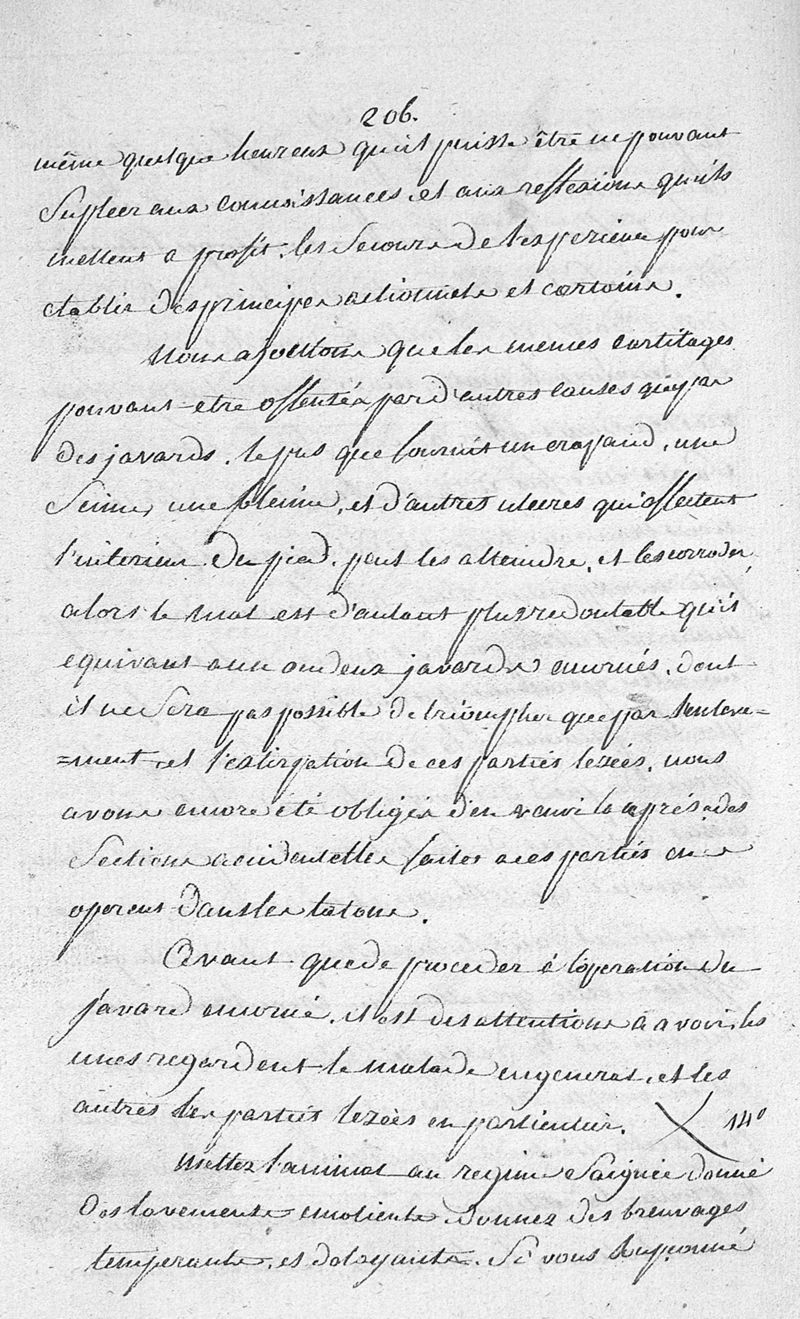 206.
même quelque heureux qu'il puisse être ne pouvant
supleer aux connoissances, et aux reflexions qu'ils
mettent a profit. les secours de l'esperience pour
etablir des principes et certains.
Nous ajoutons que les memes cartilages
pouvant etre affectés par d'autres causes que par
des javards. le pus que fournit un crapaud, une
seime, une bleime, et d'autres ulceres qui affectent
l'interieur du pied, peut les atteindre, et les corroder,
alors le mal est d'autant plus redoutable qu'il
equivaut a un ou deux javards encornés. dont
il ne sera pas possible de triompher que par l'enleve=
=ment, et l'extirpation de ces parties lezées, nous
avons encore été obligés d'en venir la après des
sections accidentelles faites a ces parties en
operent dans les talons.
Avant que de proceder à l'operation du
javard encorné, il est des attentions à avoir, les
unes regardent le malade en general, et les
autres les parties lezées en particulier. X 14°
Mettez l'animal au regime saignée donné
des lavements emolients donnez des breuvages
temperants, et delayants. Si vous soupconné